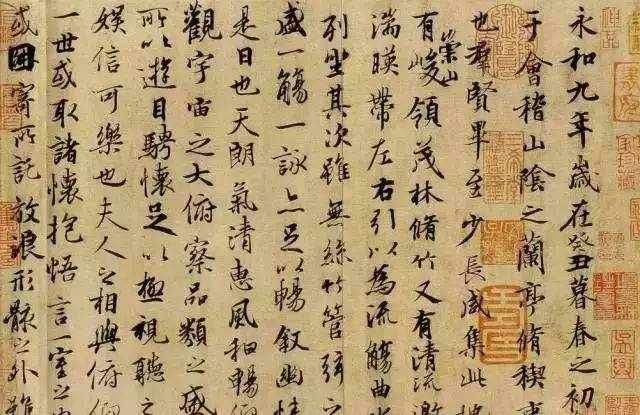 永和九年歲在癸丑暮春之初
于會稽山陰之蘭亭脩稧事
也羣賢畢至少長咸集此地
有崇山峻領茂林脩竹又有清流激
湍暎帶左右引以為流觴曲水
列坐其次雖無絲竹管弦之
盛一觴一詠亦足以暢叙幽情
是日也天朗氣清惠風和暢仰
觀宇宙之大俯察品類之盛
所以遊目騁懷足以極視聽之
娛信可樂也夫人之相與俯仰
一世或取諸懷抱悟言一室之內
或因寄所託放浪形骸之外雖